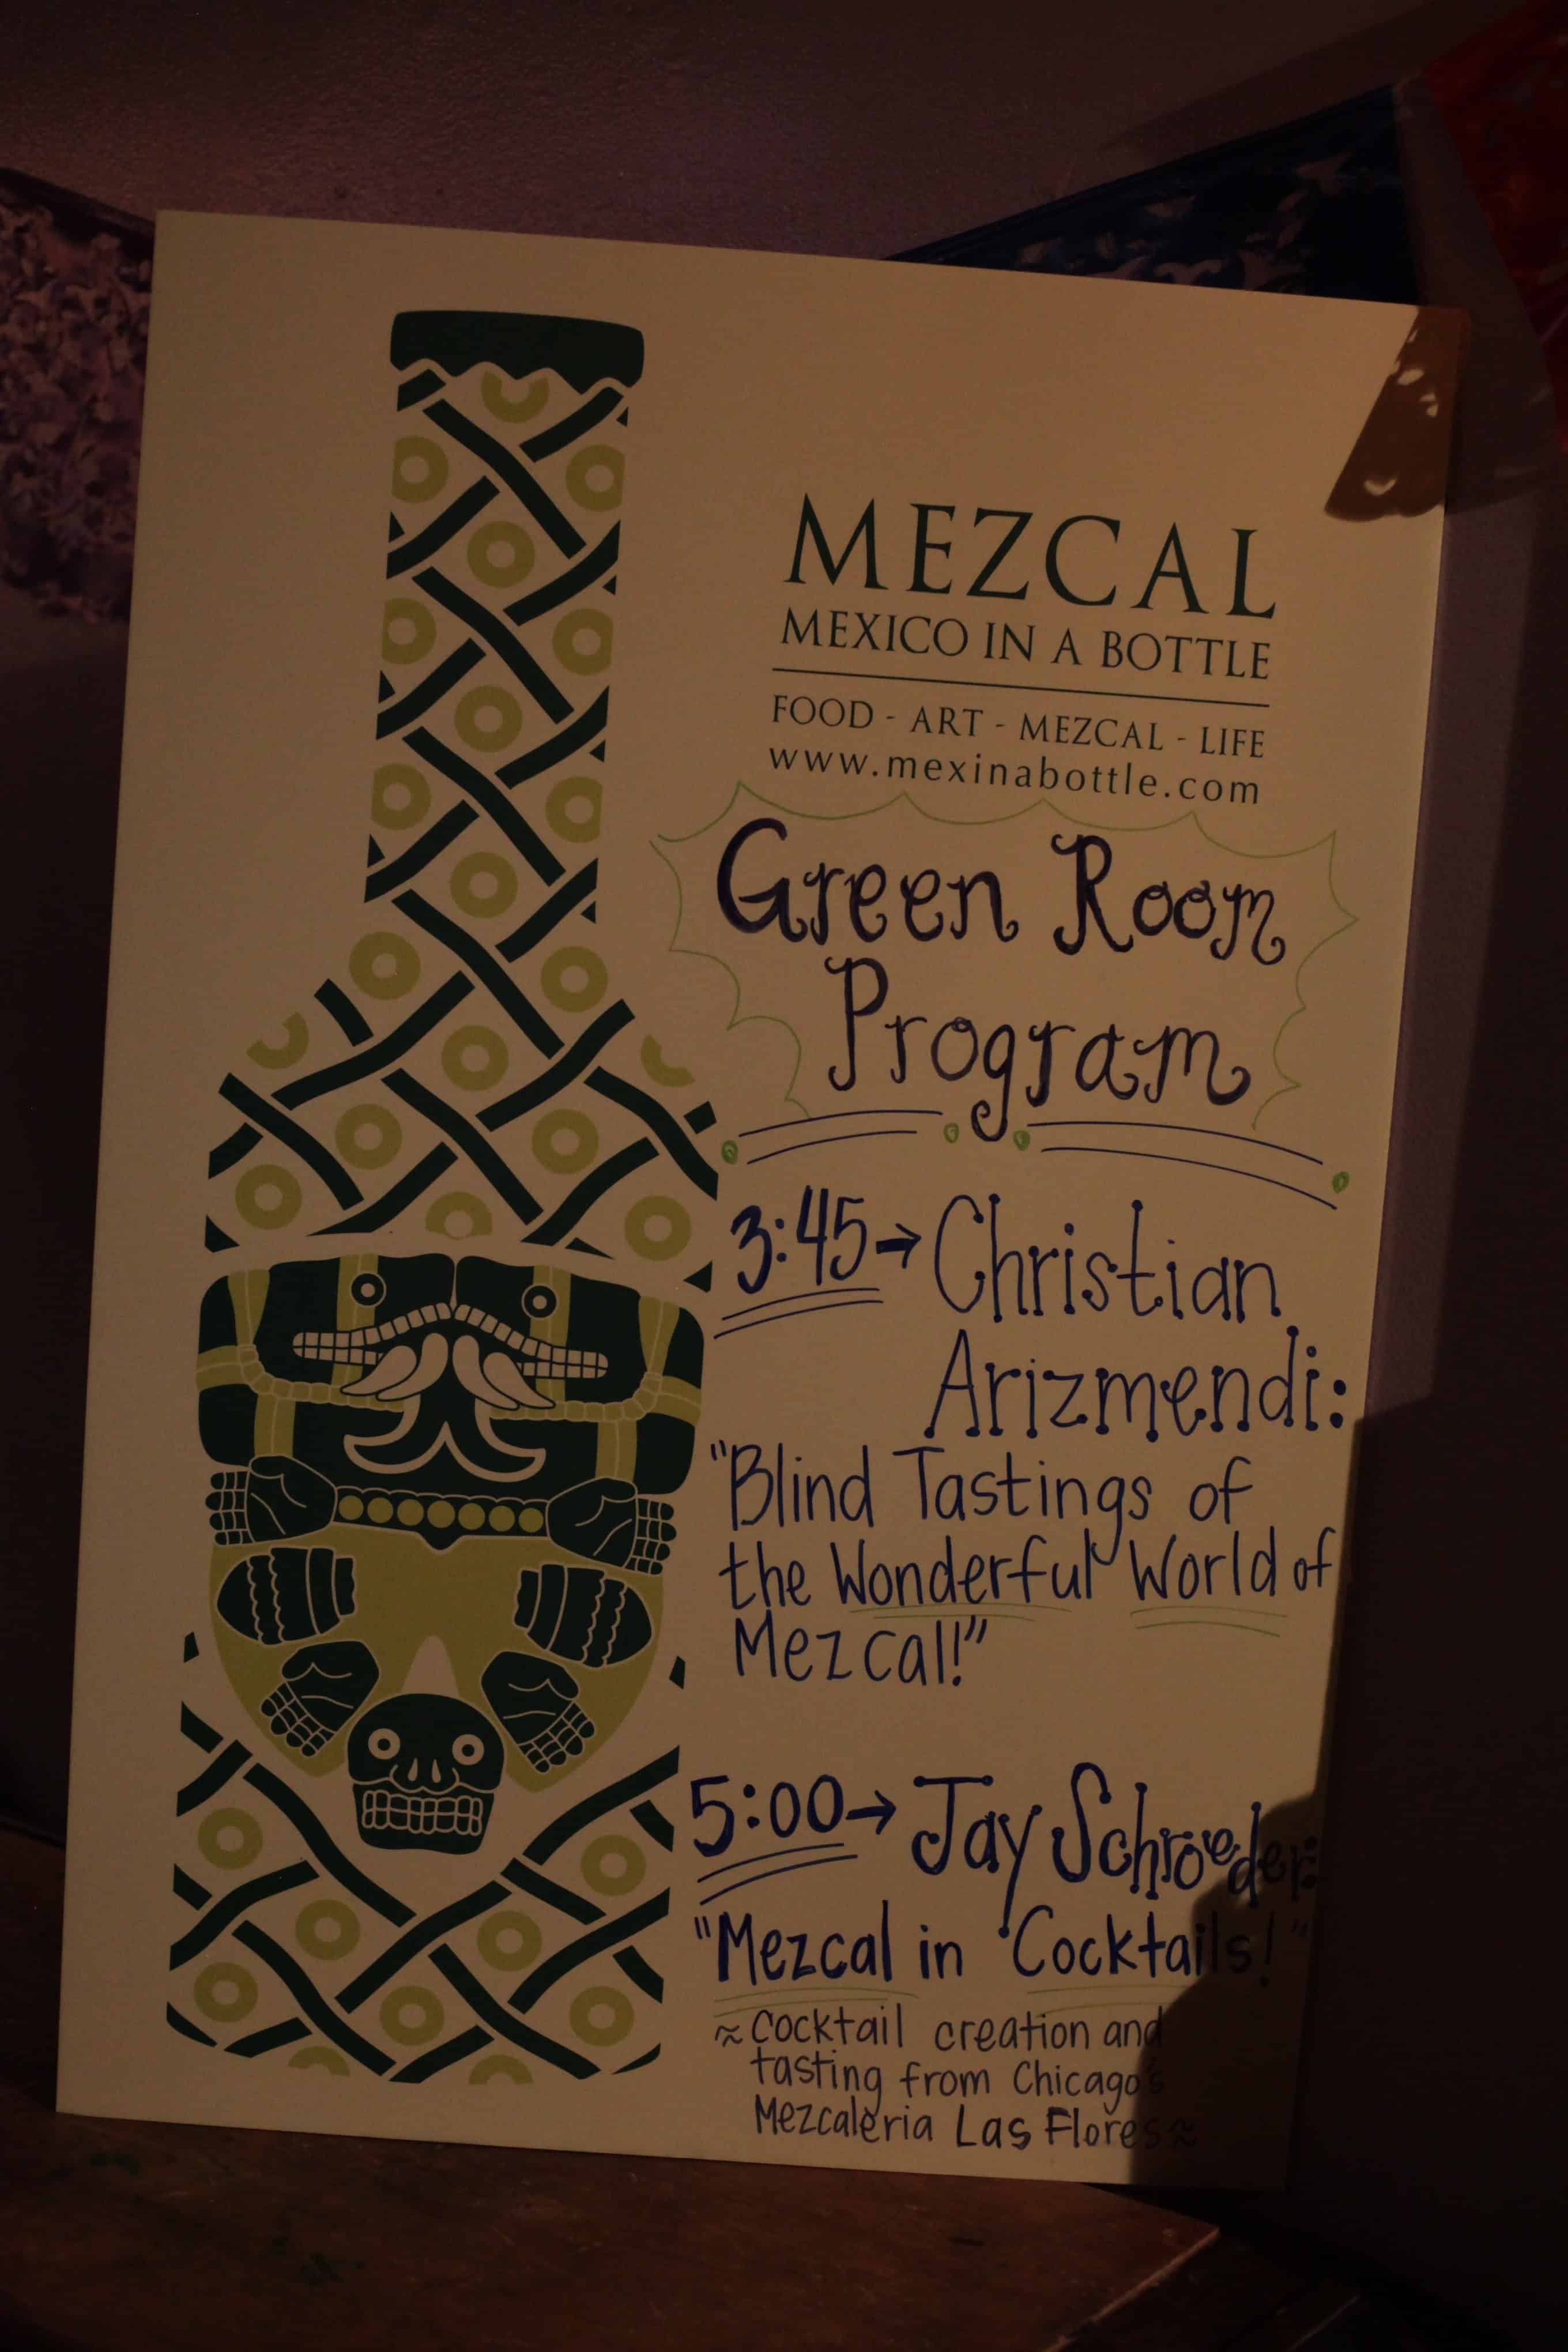 MEZCAL
MEXICO IN A BOTTLE
FOOD - ART - MEZCAL - LIFE
www.mexinabottle.com
Green Room
Program
3:45→ Christian
Arizmendi:
"Blind Tastings of
the Wonderful World of
Mezcal!"
5:00→ Jay Schroeder:
"Mezcal in Cocktails!"
≈ Cocktail creation and
tasting from Chicago's
Mezcaleria Las Flores ≈